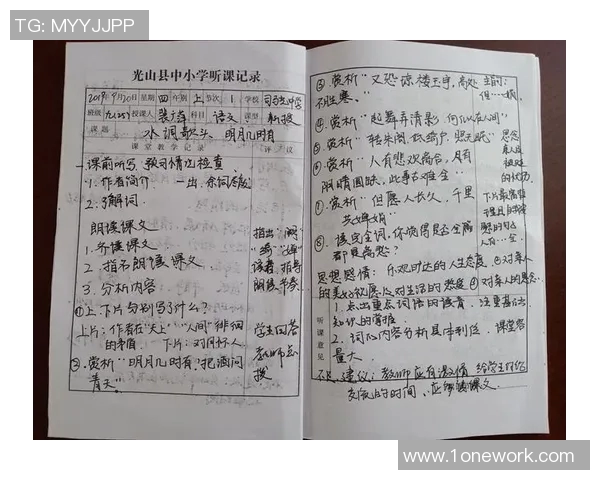 TG: MYYJJPP
光山县中小学听课记录
2019年9月20日 星期 四 年别 上 节次 1 学校
班级 九(2) 授课人 科目 语文 课型 新授
课题 水调歌头 明月几时有
课堂教学记录 评议
课前听写、预习情况检查
1. 作者简介 一出
2. 了解词
朗读课文
1. 齐读课文
2. 指名朗读课文
3. 分析内容
①上、下片分别写了什么?
上片:作者在"天上""人间"徘徊
的矛盾. 下片:对月怀人
②. 赏析"明月几时有,把酒问
青天"
指出
读音, 指导
朗读、节奏
学生回答
教师点
拨
③. 赏析"又恐琼楼玉宇,高处
不胜寒。"
④. 赏析"起舞弄清影,何似在人间"
⑤. 赏析"转朱阁,低绮户,照无眠"
⑥. 赏析"人有悲欢离合,月有
阴晴圆缺,此事古难全"
⑦. 赏析"但愿人长久,千里
共婵娟"
⑧. 读完全词,你觉得是否全篇
都是离愁?
思想感情: 乐观旷达的人生态度 ②对亲人
的美好祝愿 ③对生活的热爱 ④对亲人的思念.
听课意见
1. 点出重点词语的读音 注重基础
知识的掌握
2. 词的内容分析具体到位. 课堂容
量大.
建议: 教师应有激情 给学生
交流的时间、应
www.1onework.com